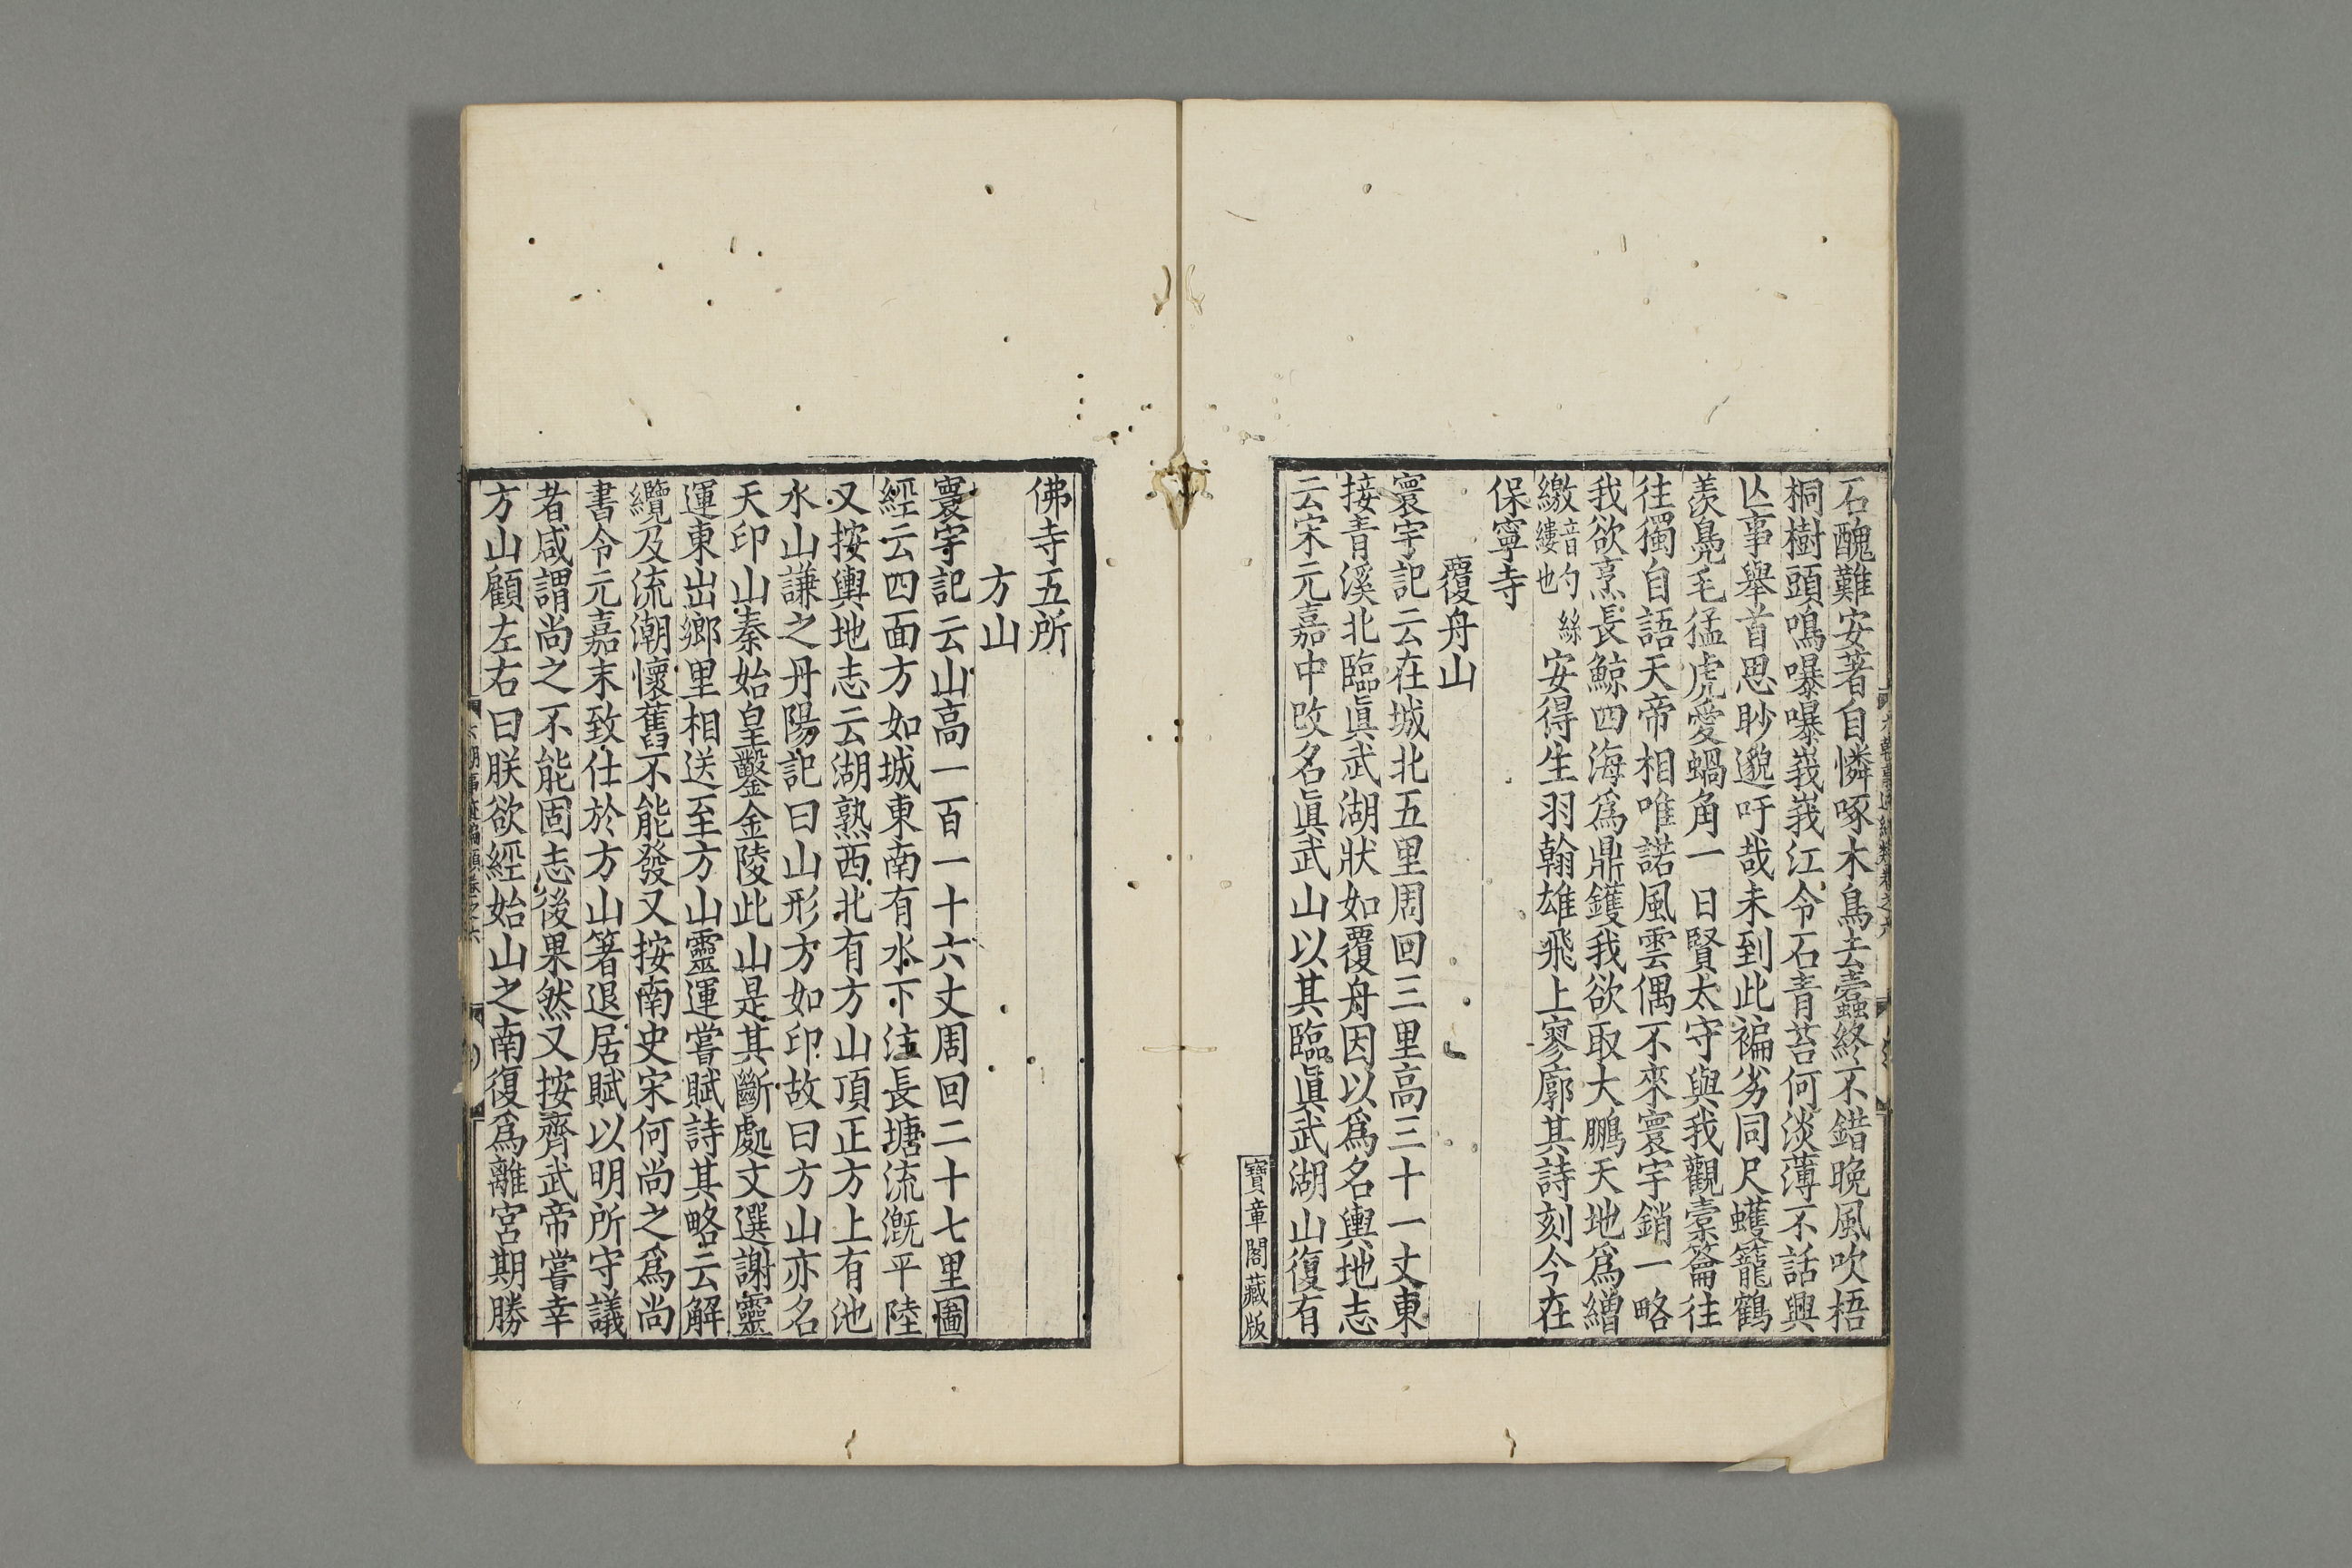 石醜難安著自憐啄木鳥去蠧終不錯晚風吹梧
桐樹頭鳴曝曝峩峩江令石青苔何淡薄不話興
亾事舉首思眇邈吁哉未到此褊劣同尺蠖籠鶴
羨鳧毛猛虎愛蝸角一日賢太守與我觀橐籥往
往獨自語天帝相唯諾風雲偶不來寰宇銷一略
我欲烹長鯨四海爲鼎鑊我欲取大鵬天地爲繒
繳音勺絲縷也安得生羽翰雄飛上寥廓其詩刻今在
保寧寺
覆舟山
寰宇記云在城北五里周回三里高三十一丈東
接青溪北臨眞武湖狀如覆舟因以爲名輿地志
云宋元嘉中改名眞武山以其臨眞武湖山復有
寶章閣藏版
佛寺五所
方山
寰宇記云山高一百一十六丈周回二十七里圖
經云四面方如城東南有水下注長塘流漑平陸
又按輿地志云湖熟西北有方山頂正方上有池
水山謙之丹陽記曰山形方如印故曰方山亦名
天印山秦始皇鑿金陵此山是其斷處文選謝靈
運東出鄉里相送至方山靈運嘗賦詩其略云解
纜及流潮懷舊不能發又按南史宋何尚之爲尚
書令元嘉末致仕於方山著退居賦以明所守議
者咸謂尚之不能固志後果然又按齊武帝嘗幸
方山顧左右曰朕欲經始山之南復爲離宮期勝
六朝事迹編類卷之六